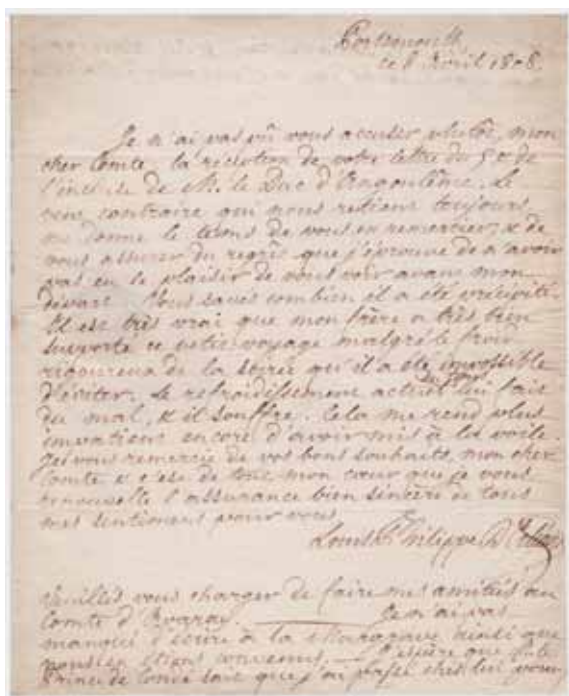 Portsmouth,
ce 8 Avril 1808.
Je n'ai pas pû vous accuser plutôt, mon
cher Comte, la réception de votre lettre du 5 & de
l'incluse de M. le Duc d'Angoulême. Le
vent contraire qui nous retient toujours
me donne le tems de vous en remercier, & de
vous assurer du regrêt que j'éprouve de n'avoir
pas eu le plaisir de vous voir avant mon
départ. Vous savés combien il a été précipité.
Il est très vrai que mon frère a très bien
supporté ce petit voyage malgré le froid
rigoureux de la soirée qu'il a été impossible
d'éviter. Le refroidissement actuel lui fait
du mal, & il souffre. Cela me rend plus
impatient encore d'avoir mis à la voile.
Je vous remercie de vos bons souhaits, mon cher
Comte & c'est de tout mon cœur que je vous
renouvelle l'assurance bien sincère de tous
mes sentimens pour vous,
Louis Philippe D'Orléans
Veuillés vous charger de faire mes amitiés au
Comte d'Avaray. Je n'ai pas
manqué d'écrire à la ainsi que
nous en étions convenus. J'espère que le
Prince de Condé sait que j'ai passé chez lui pour